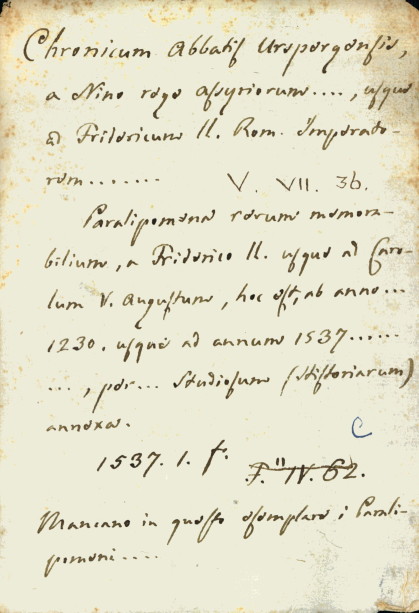 Chronicum Abbatis Urspergensis,
a Nino rege assyriorum...., usque
ad Fridericum II. Rom. Imperato-
rem.......
V. VII. 36.
Paralipomena rerum memora-
bilium, a Friderico II. usque ad Caro-
lum V. Augustum, hoc est, ab anno...
1230. usque ad annum 1537......
..., per... Studiosum (Historiarum)
annexa.
C
1537. 1. f.
F." IV. 62.
Mancano in questo esemplare i Parali-
pomeni....